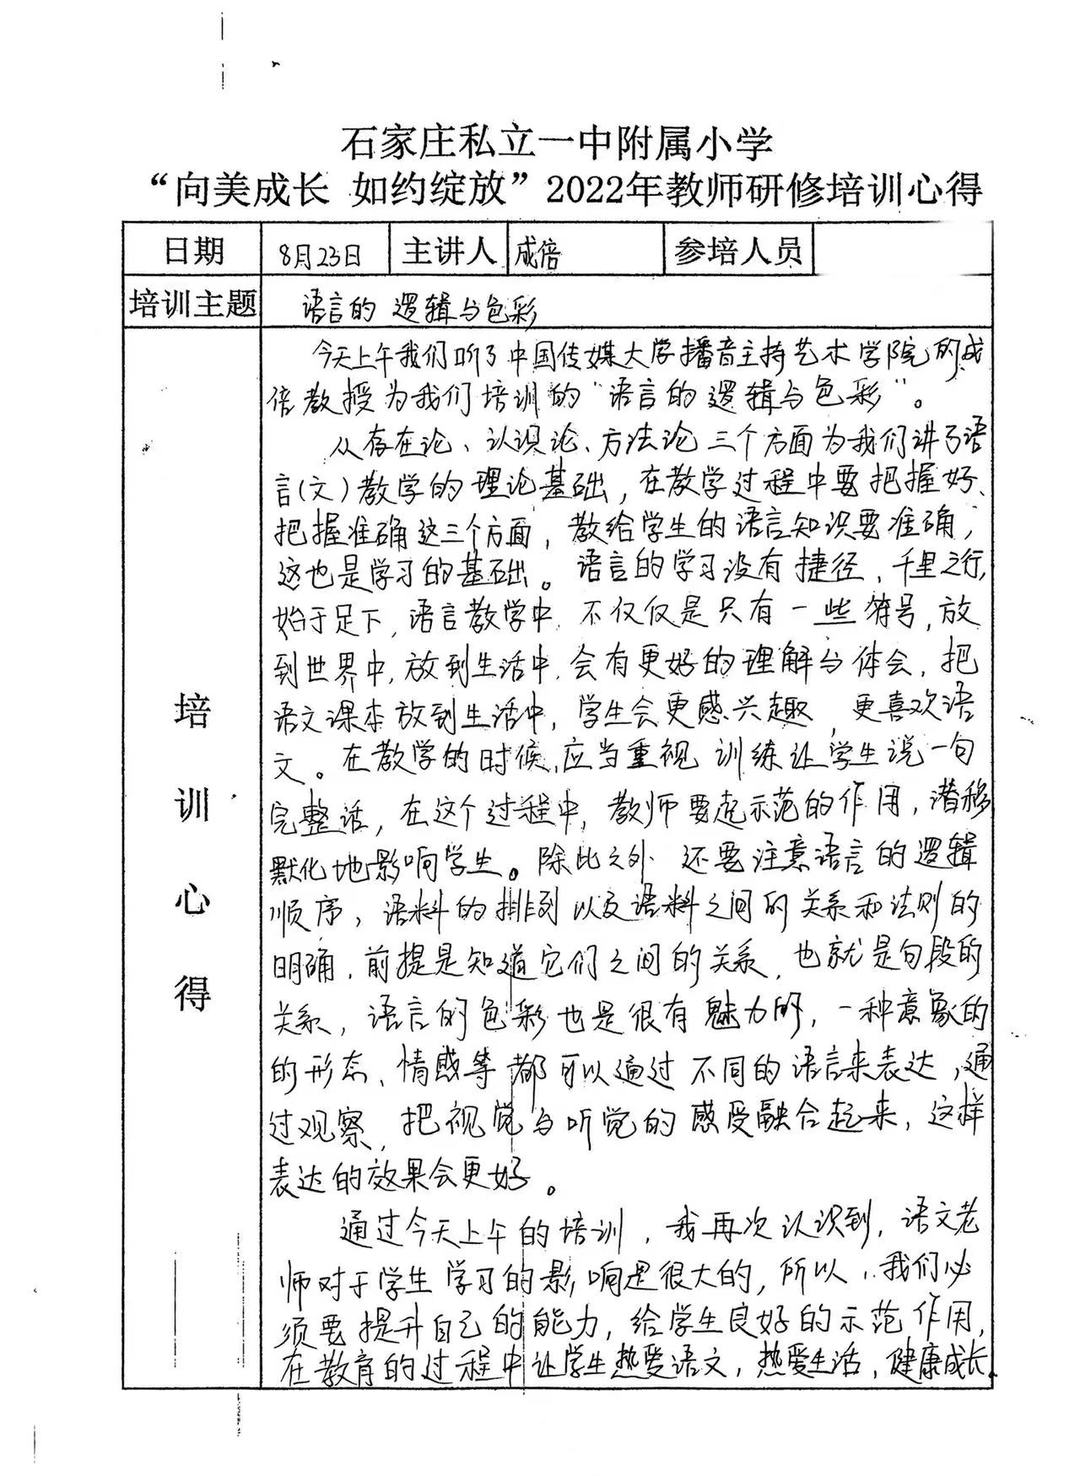 石家庄私立一中附属小学
“向美成长 如约绽放”2022年教师研修培训心得
日期 8月23日 主讲人 成倍 参培人员
培训主题 语言的逻辑与色彩
培训心得
今天上午我们听了中国传媒大学播音主持艺术学院的成
倍教授为我们培训的“语言的逻辑与色彩”。
从存在论、认识论、方法论三个方面为我们讲了语
言(文)教学的理论基础，在教学过程中要把握好、
把握准确这三个方面，教给学生的语言知识要准确，
这也是学习的基础。语言的学习没有捷径，千里之行，
始于足下，语言教学中，不仅仅是只有一些符号，放
到世界中，放到生活中，会有更好的理解与体会，把
语文课本放到生活中，学生会更感兴趣，更喜欢语
文。在教学的时候，应当重视训练让学生说一句
完整话，在这个过程中，教师要起示范的作用，潜移
默化地影响学生。除此之外还要注意语言的逻辑
顺序，语料的排列以及语料之间的关系和法则的
明确，前提是知道它们之间的关系，也就是句段的
关系，语言的色彩也是很有魅力的，一种意象的
的形态、情感等都可以通过不同的语言来表达，通
过观察，把视觉与听觉的感受融合起来，这样
表达的效果会更好。
通过今天上午的培训，我再次认识到，语文老
师对于学生学习的影响是很大的，所以，我们必
须要提升自己的能力，给学生良好的示范作用，
在教育的过程中让学生热爱语文，热爱生活，健康成长。